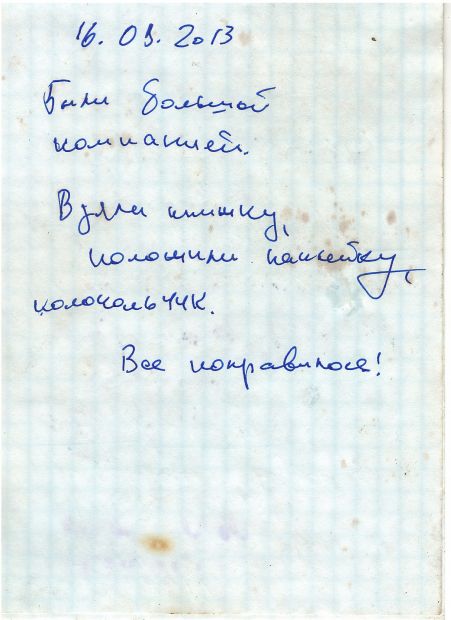 16. 03. 2013
Были большой
компанией.
Взяли
положили наклейку,
колокольчик.
Все понравилось!